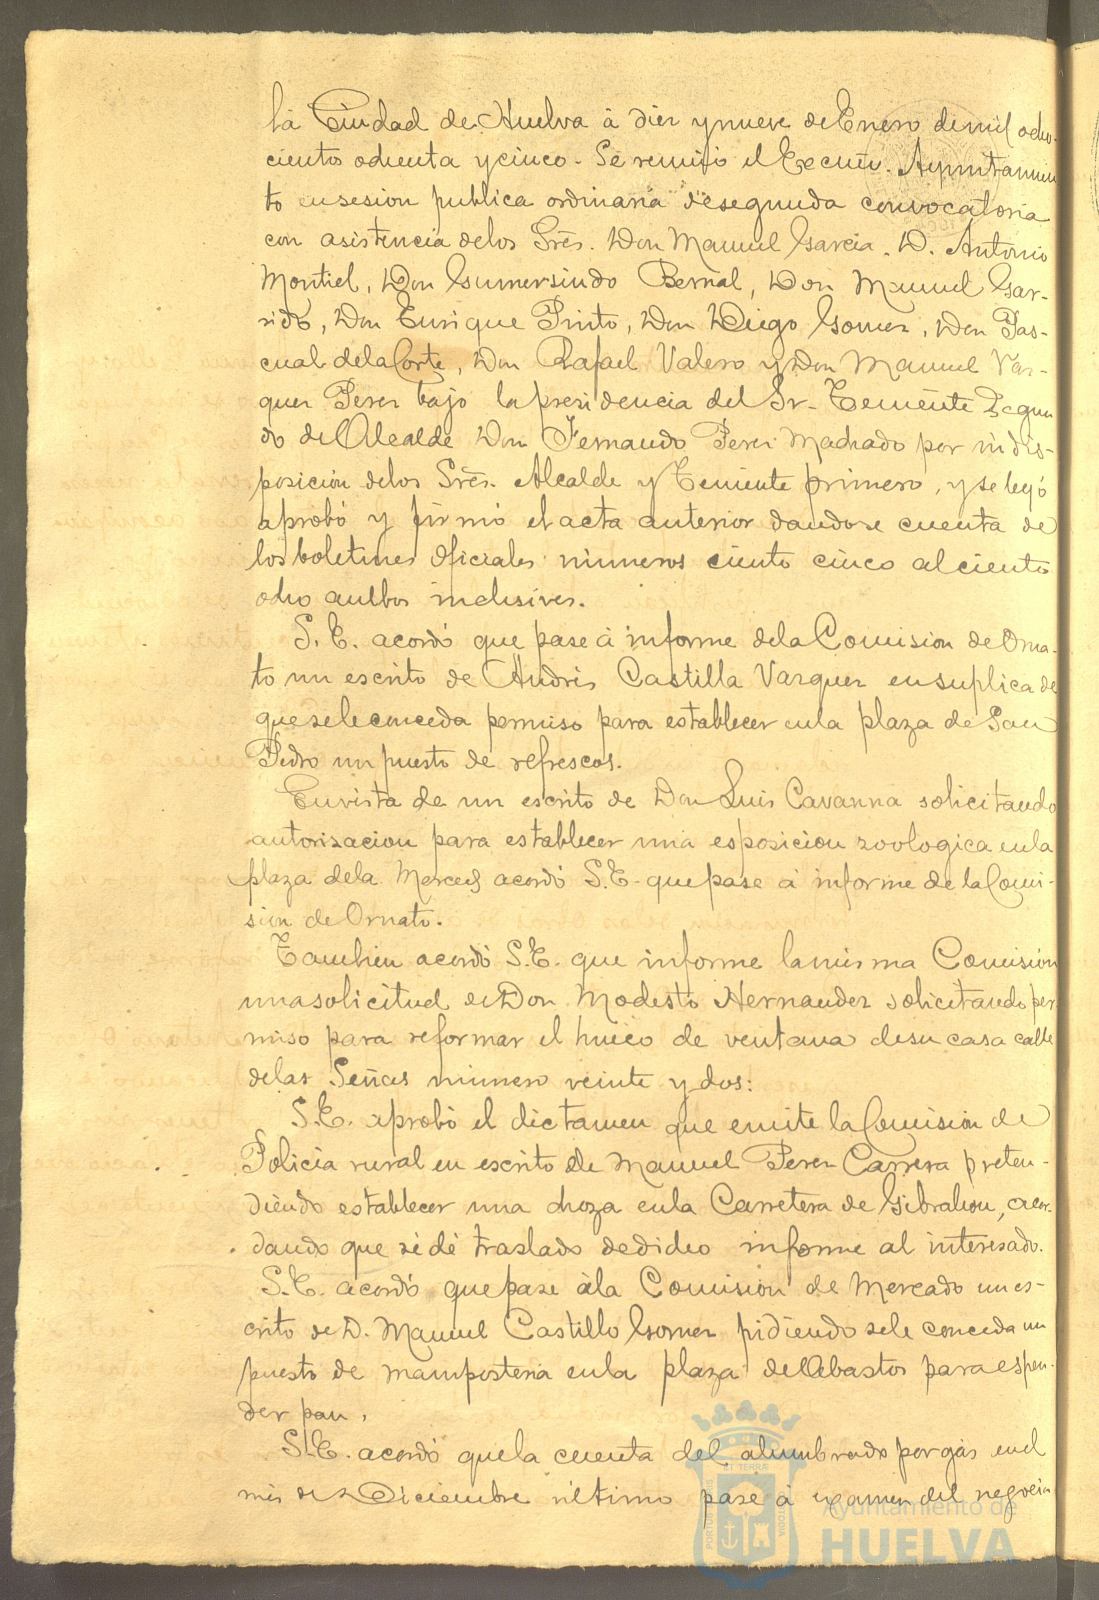 la Ciudad de Huelva à diez y nueve de Enero de mil ocho-
cientos ochenta y cinco. Se reunió el Excmo. Ayuntamien
to en sesion publica ordinaria de segunda convocatoria
con asistencia de los Sres. Don Manuel Garcia, D. Antonio
Montiel, Don Gumersindo Bernal, Don Manuel Gar-
rido, Don Enrique Pinto, Don Diego Gomez, Don Pas-
cual de la Corte, Don Rafael Valero y Don Manuel Vaz-
quez Perez bajo la presidencia del Sr. Teniente Segun
do de Alcalde Don Fernando Perez Machado por indis-
posición de los Sres. Alcalde y Teniente primero, y se leyó
aprobó y firmó el acta anterior dandose cuenta de
los boletines oficiales números ciento cinco al ciento
ocho ambos inclusives.
S. E. acordó que pase à informe de la Comision de Orna-
to un escrito de Andrés Castilla Vazquez en suplica de
que se le conceda permiso para establecer en la plaza de San
Pedro un puesto de refrescos.
En vista de un escrito de Don Luis Cavanna solicitando
autorizacion para establecer una esposicion zoologica en la
plaza de la Merced acordó S. E. que pase à informe de la Comi-
sion de Ornato.
Tambien acordó S. E. que informe la misma Comision
una solicitud de Don Modesto Hernandez solicitando per
miso para reformar el hueco de ventana de su casa calle
de las Señas número veinte y dos:
S. E. aprobó el dictamen que emite la Comisión de
Policia rural en escrito de Manuel Perez Carrera preten-
diendo establecer una choza en la Carretera de Gibraleon, acor-
dando que se dé traslado de dicho informe al interesado.
S. E. acordó que pase à la Comision de Mercado un es-
crito de D. Manuel Castillo Gomez pidiendo se le conceda un
puesto de mamposteria en la plaza de Abastos para espen-
der pan.
S. E. acordó que la cuenta del alumbrado por gas en el
mes de Diciembre último pase à examen del negocia
Ayuntamiento de
HUELVA